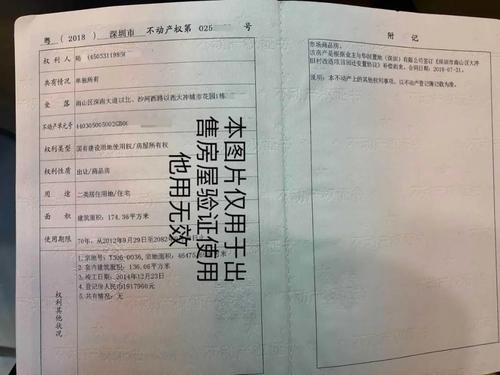 粤（2018）深圳市 不动产权第 025 号
权 利 人
共有情况 单独所有
坐 落 南山区深南大道以北、沙河西路以西大冲城市花园1栋
不动产单元号 440305005002GB00
权利类型 国有建设用地使用权/房屋所有权
权利性质 出让/商品房
用 途 二类居住用地/住宅
面 积 建筑面积：174.36平方米
使用期限 70年，从2012年9月29日至2082
权利其他状况
1.宗地号：T306-0036，宗地面积：46475.
2.套内建筑面积：136.06平方米
3.竣工日期：2014年12月23日
4.登记价人民币1917960元
5.共有情况：无
本图片仅用于出
售房屋验证使用
他用无效
附 记
市场商品房。
该房产是根据业主与华润置地（深圳）有限公司签订《深圳市南山区大冲
旧村改造项目回迁安置协议》补偿而来，合同日期：2018-07-21。
说明：本不动产上的其他权利事项，以不动产登记簿记载为准。